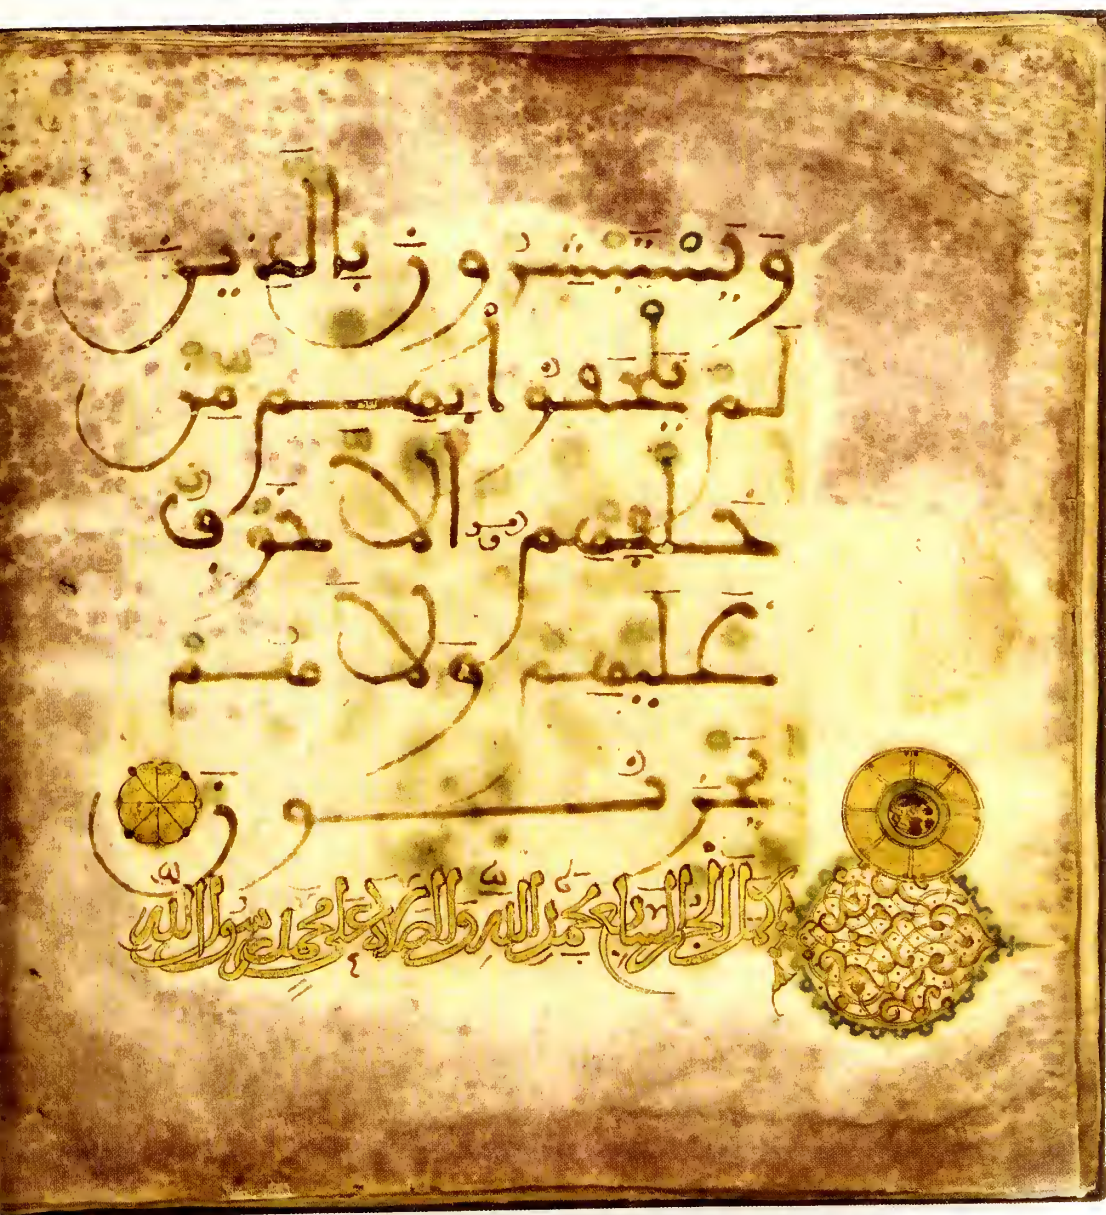 وَيَسْتَبْشِرُونَ بِالَّذِينَ
لَمْ يَلْحَقُوا بِهِم مِّنْ
خَلْفِهِمْ أَلَّا خَوْفٌ
عَلَيْهِمْ وَلَا هُمْ
يَحْزَنُونَ
كمل الجزء السابع بحمد الله والصلاة على محمد رسول الله